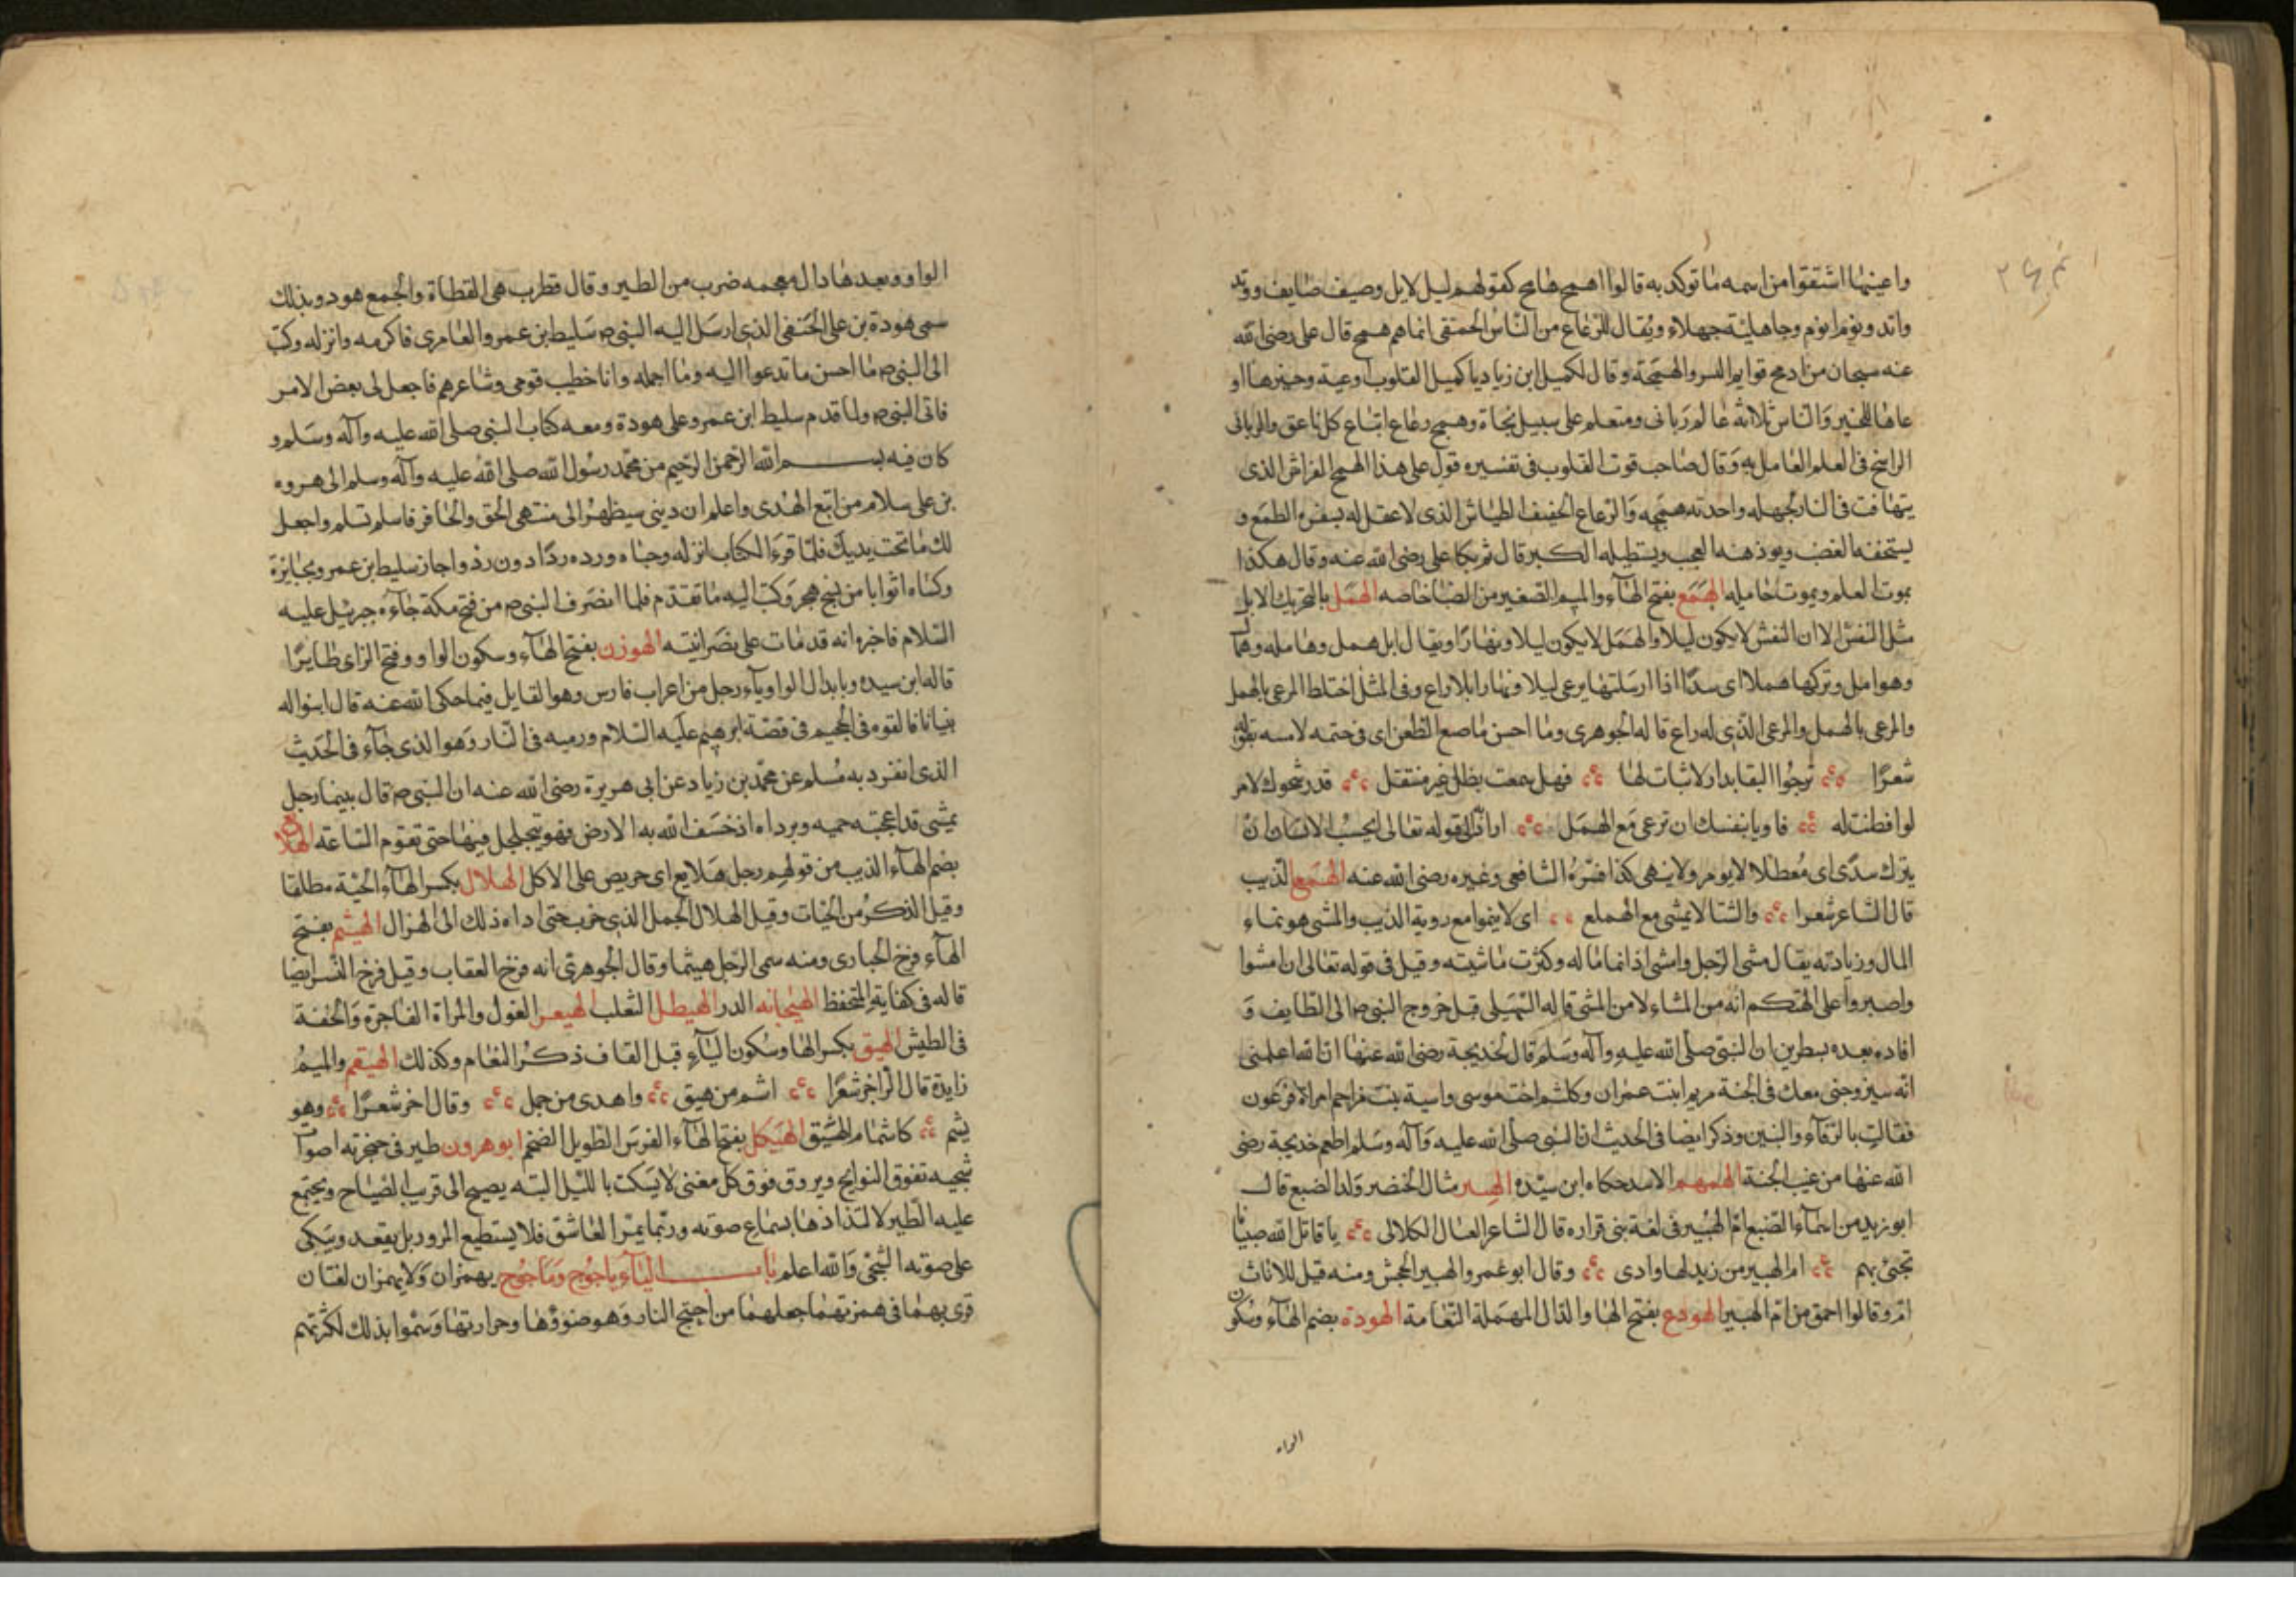 واعينها اشتقوا من اسمه ما توكد به قالوا اهمج هامج كقولهم ليل لايل وصيف صايف ووتد
واتد ويوم ايوم وجاهلية جهلاء ويقال للرعاع من الناس الحمقى انما هم همج قال على رضى الله
عنه سبحان من ادمج قوايم النسر والهمجة وقال لكميل ابن زياد يا كميل القلوب اوعية وخيرها او
عاها للخير والناس ثلاثة عالم ربانى ومتعلم على سبيل نجاة وهمج رعاع اتباع كل ناعق والربانى
الراسخ فى العلم العامل به وقال صاحب قوت القلوب فى تفسيره قول على هذا الهمج الفراش الذى
يتهافت فى النار لجهله واحدته همجه والرعاع الخفيف الطياش الذى لا عقل له يستفزه الطمع و
يستخفه الغضب ويوذهنه العجب ويستطيله الكبر قال ثم بكا على رضى الله عنه وقال هكذا
يموت العلم ويموت حامله الهمع بفتح الهاء والميم الصغير من الضبا خاصه الهمل بالتحريك الابل
مثل النفش الا ان النفش لا يكون ليلا والهمل لا يكون ليلا ونهارا ويقال ابل همل وهامله وهمال
وهوامل وتركها هملا اى سدا اذا ارسلتها يرعى ليلا ونهارا بلا راع وفى المثل اختلط المرعى بالهمل
والمرعى بالهمل والمرعى الذى له راع قاله الجوهرى وما احسن ما صع الطعن اى فى ختمه لامسه بقوله
شعرا ترجوا البقا بدار لا ثبات لها فهل سمعت بظل غير منتقل قد رشحوك لامر
لو افطنت له فاوبا بنفسك ان ترعى مع الهمل اراد الى قوله تعالى ايحسب الانسان ان
يترك سدى اى معطلا لا يومر ولا ينهى كذا فسره الشافعى وغيره رضى الله عنه الهمع الذيب
قال الشاعر شعرا والشا لا يمشى مع الهملع اى لا ينموا مع روية الذيب والمشى هو نماء
المال وزيادته يقال مشى الرجل وامشى اذا نما ماله وكثرت ماشيته وقيل فى قوله تعالى ان امشوا
واصبروا على الهتكم انه من المشاء لا من المشى قاله السهيلى قبل خروج النبى ص الى الطايف و
افاده بعده بسطرين ان النبى صلى الله عليه وآله وسلم قال لخديجة رضى الله عنها ان الله اعلمنى
انه سيزوجنى معك فى الجنة مريم ابنت عمران وكلثم اخت موسى واسية بنت مزاحم امراة فرعون
فقالت بالرفآء والبنين وذكر ايضا فى الحديث ان النبى صلى الله عليه وآله وسلم اطعم خديجة رضى
الله عنها من عنب الجنة الهمهم الاسد حكاه ابن سيده الهبير مثال الخنضر ولد الضبع قال
ابو زيد من اسمآء الضبع ام الهبير فى لغة بنى فزاره قال الشاعر العال الكلالى يا قاتل الله صبيانا
تجئ بهم ام الهبير من زند لها وادى وقال ابو عمرو الهبير الجحش ومنه قيل للاتان
ام وقالوا احمق من ام الهبير الهودع بفتح الها والدال المهملة النعامة الهوذة بضم الهآء وسكون
الواو
الواو وبعدها دال معجمه ضرب من الطير وقال قطرب هى القطاة والجمع هود وبذلك
سمى هودة بن على الحنفى الذى ارسل اليه النبى ص سليط بن عمرو العامرى فاكرمه وانزله وكتب
الى النبى ص ما احسن ما تدعوا اليه وما اجمله وانا خطيب قومى وشاعرهم فاجعل لى بعض الامر
فاتى النبى ص ولما قدم سليط ابن عمرو على هودة ومعه كتاب النبى صلى الله عليه وآله وسلم و
كان فيه بسم الله الرحمن الرحيم من محمد رسول الله صلى الله عليه وآله وسلم الى هروه
بن على سلام من اتبع الهدى واعلم ان دينى سيظهر الى منتهى الحق والحافر فاسلم تسلم واجعل
لك ما تحت يديك فلما قرء الكتاب انزله وحباه ورده ردا دون رد واجاز سليط ابن عمرو بجايزة
وكساه اثوابا من نسج هجر وكتب اليه ما تقدم فلما انصرف النبى ص من فتح مكة جاءه جبريل عليه
السلام فاخبره انه قد مات على نصرانيته الهوزن بفتح الهآء وسكون الواو وفتح الزاى طايرا
قاله ابن سيده وبابدال الواو يآء رجل من اعراب فارس وهو القايل فيما حكى الله عنه قال ابنوا له
بنيانا فالقوه فى الجحيم فى قصة ابرهيم عليه السلام ورميه فى النار وهو الذى جاء فى الحديث
الذى انفرد به مسلم عن محمد بن زياد عن ابى هريرة رضى الله عنه ان النبى ص قال بينما رجل
يمشى قد اعجبته جمه وبرداه اذ خسف الله به الارض فهو يتجلجل فيها حتى تقوم الساعة الهلابع
بضم الهآء الذيب من قولهم رجل هلابع اى حريص على الاكل الهلال بكسر الهآء الحية مطلقا
وقيل الذكر من الحيات وقيل الهلال الجمل الذى ضرب حتى اداه ذلك الى الهزال الهيثم بفتح
الهآء فرخ الحبارى ومنه سمى الرجل هيثما وقال الجوهرى انه فرخ العقاب وقيل فرخ النسر ايضا
قاله فى كفاية المتحفظ الهيجمانه الدر الهيطل الثعلب الهيعر الغول والمراة الفاجرة والخفة
فى الطيش الهيق بكسر الها وسكون اليآء قبل القاف ذكر النعام وكذلك الهيقم والميم
زايدة قال الراجز شعرا اشم من هيق واهدى من جمل وقال اخر شعرا وهو
يشم كاشمام الهيق الهيكل بفتح الهآء الفرس الطويل الضخم ابو هرون طير فى حنجرته اصوات
شجيه تفوق النوايح ويروق فوق كل مغنى لا يسكت بالليل البته يصيح الى قريب الصياح ويجتمع
عليه الطير لالتذاذها بسماع صوته وربما يمر العاشق فلا يستطيع المرور بل يقعد ويبكى
على صوته الشجى والله اعلم باب اليآء ياجوج وماجوج يهمزان ولا يهمزان لغتان
قرى بهما فى همزتهما جعلهما من اجيج النار وهو ضوؤها وحرارتها وسموا بذلك لكثرتهم